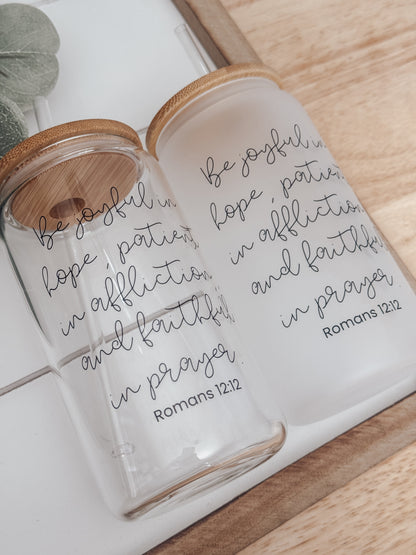 Be joyful in
hope, patient
in affliction,
and faithful
in prayer.
Romans 12:12
Be joyful in
hope, patient
in affliction,
and faithful
in prayer.
Romans 12:12